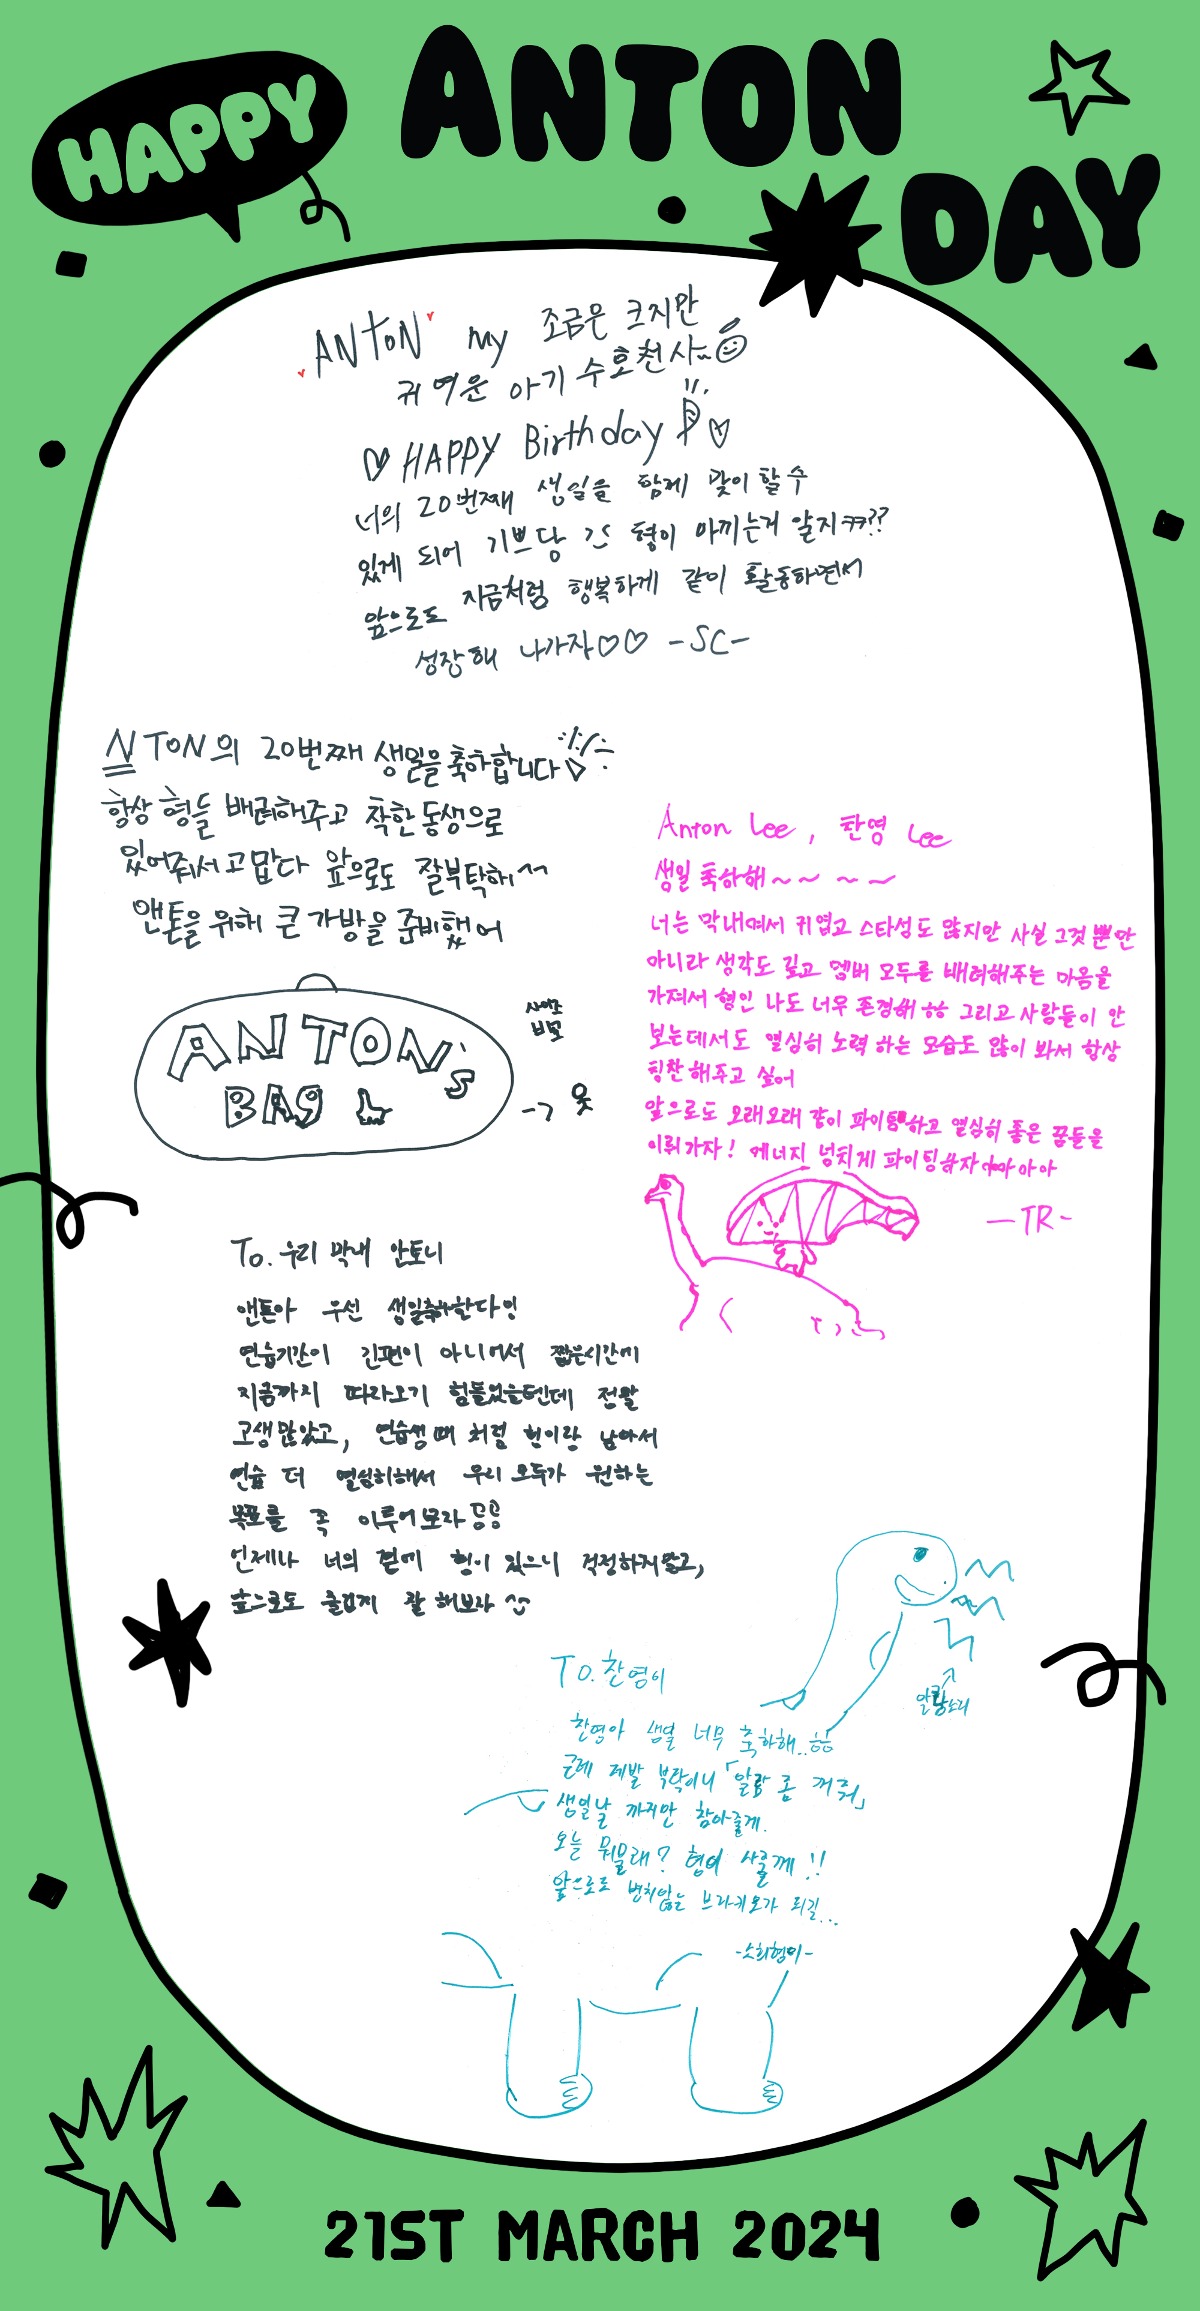 HAPPY
ANTON
DAY
ANToN my 조금은 크지만
귀여운 아기 수호천사~
HAPPY Birthday
너의 20번째 생일을 함께 맞이할 수
있게 되어 기쁘당 ㅎㅎ 형이 아끼는거 알지ㅋㅋ??
앞으로도 지금처럼 행복하게 같이 활동하면서
성장해 나가자♡♡ -SC-
NTON의 20번째 생일을 축하합니다
항상 형들 배려해주고 착한 동생으로
있어줘서 고맙다 앞으로도 잘부탁해~
앤톤을 위해 큰 가방을 준비했어
ANTON's
BAG
사이즈
비교
-> 옷
Anton Lee, 찬영 Lee
생일 축하해~~ ~ ~
너는 막내여서 귀엽고 스타성도 많지만 사실 그것 뿐만
아니라 생각도 깊고 멤버 모두를 배려해주는 마음을
가져서 형인 나도 너무 존경해 ㅎㅎ 그리고 사람들이 안
보는데서도 열심히 노력 하는 모습도 많이 봐서 항상
칭찬해주고 싶어
앞으로도 오래오래 같이 파이팅하고 열심히 좋은 꿈들을
이뤄가자! 에너지 넘치게 파이팅하자 아아아
-TR-
To. 우리 막내 안토니
앤톤아 우선 생일축하한다!
연습기간이 긴편이 아니어서 짧은시간에
지금까지 따라오기 힘들었을텐데 정말
고생많았고, 연습생때 처럼 형이랑 남아서
연습 더 열심히해서 우리 모두가 원하는
목표를 꼭 이루어보자 ㅎㅎ
언제나 너의 곁에 형이 있으니 걱정하지말고,
앞으로도 즐겁게 잘 해보자
알람소리
To. 찬영이
찬영아 생일 너무 축하해..ㅎㅎ
근데 제발 부탁이니 「알람 좀 꺼줘」
생일날 까지만 참아줄게.
오늘 뭐먹을래? 형이 사줄께!!
앞으로도 변치않는 브라키오가 되길...
-소희형이-
21ST MARCH 2024